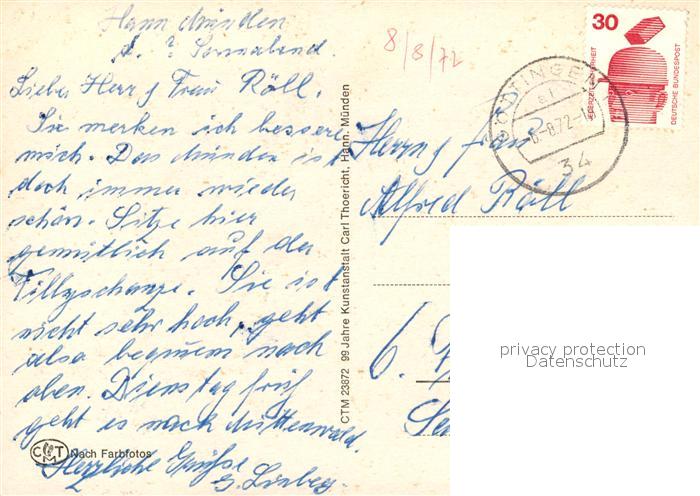 Hann. Münden
d. ? Sonnabend
Liebe Herr & Frau Röll.
Sie merken ich bessere
mich. Das münden ist
doch immer wieder
schön. Sitze hier
gemütlich auf der
Tillyschanze. Sie ist
nicht sehr hoch, geht
also bequem nach
oben. Dienstag früh
geht es nach Mittenwald.
Herzliche Grüße
CTM Nach Farbfotos
CTM 23872 99 Jahre Kunstanstalt Carl Thoericht, Hann. Münden
8/8/72
Herrn & Frau
Alfred Röll
6.
30
JEDERZEIT SICHERHEIT
DEUTSCHE BUNDESPOST
GÖTTINGEN
-8.72-
34
privacy protection
Datenschutz